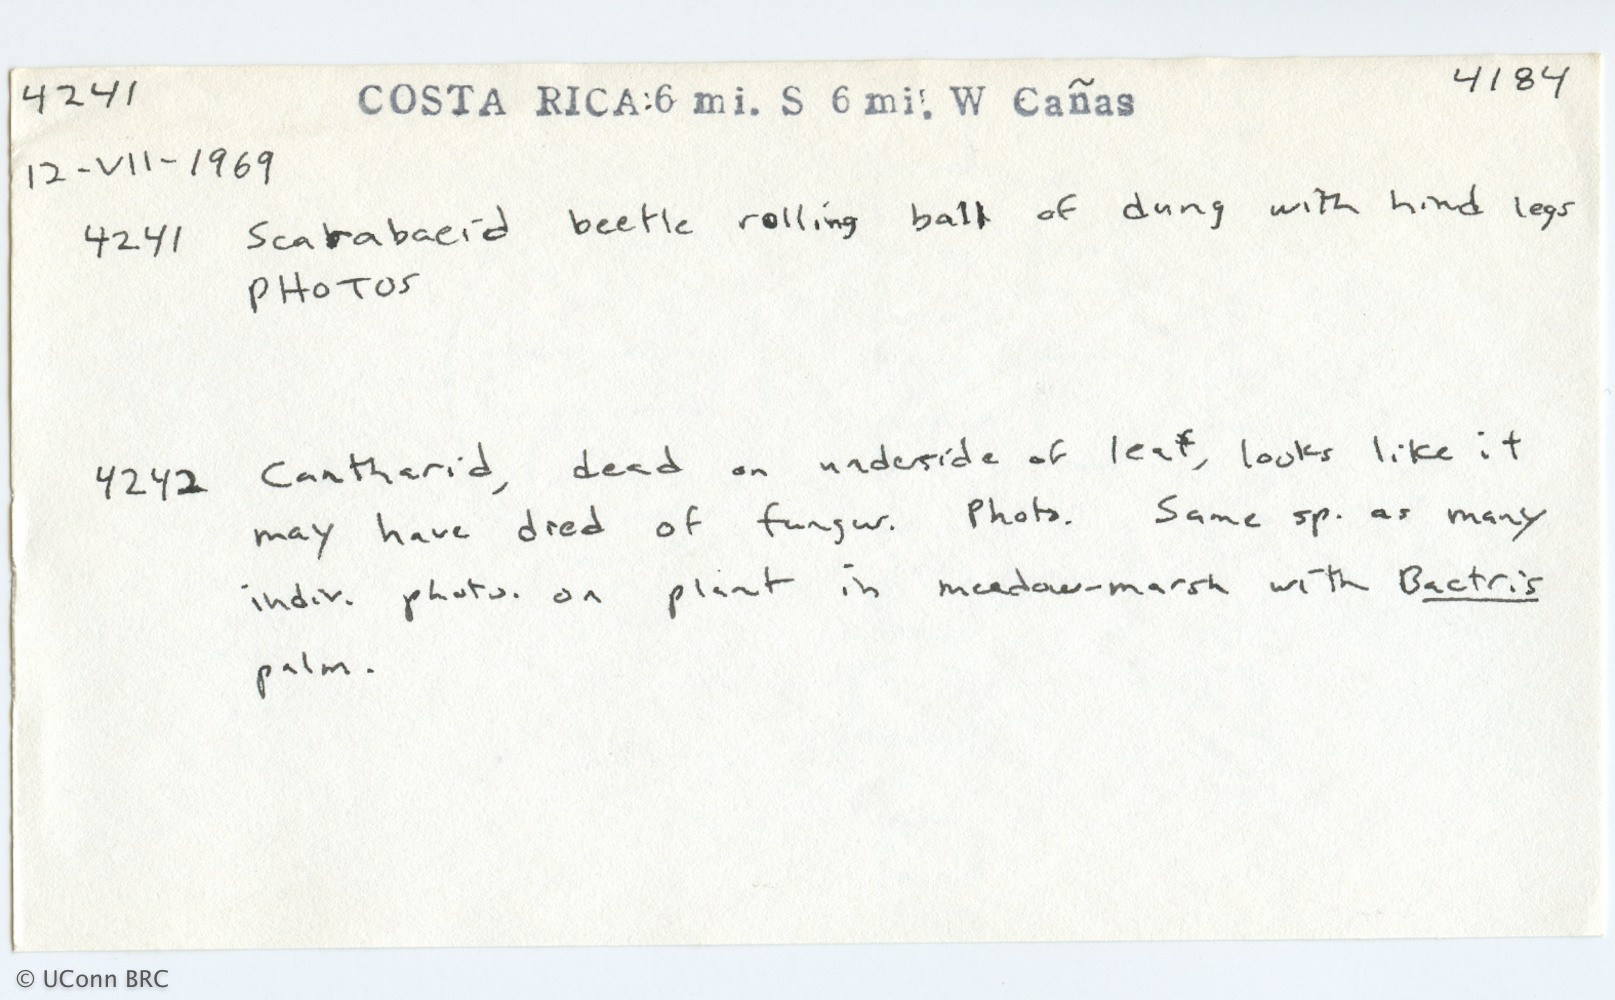 4241 COSTA RICA:6 mi. S 6 mi. W Cañas 4184
12-VII-1969
4241 Scarabaeid beetle rolling ball of dung with hind legs
PHOTOS
4242 Cantharid, dead on underside of leaf, looks like it
may have died of fungus. Photo. Same sp. as many
indiv. photo. on plant in meadow-marsh with Bactris
palm.
© UConn BRC